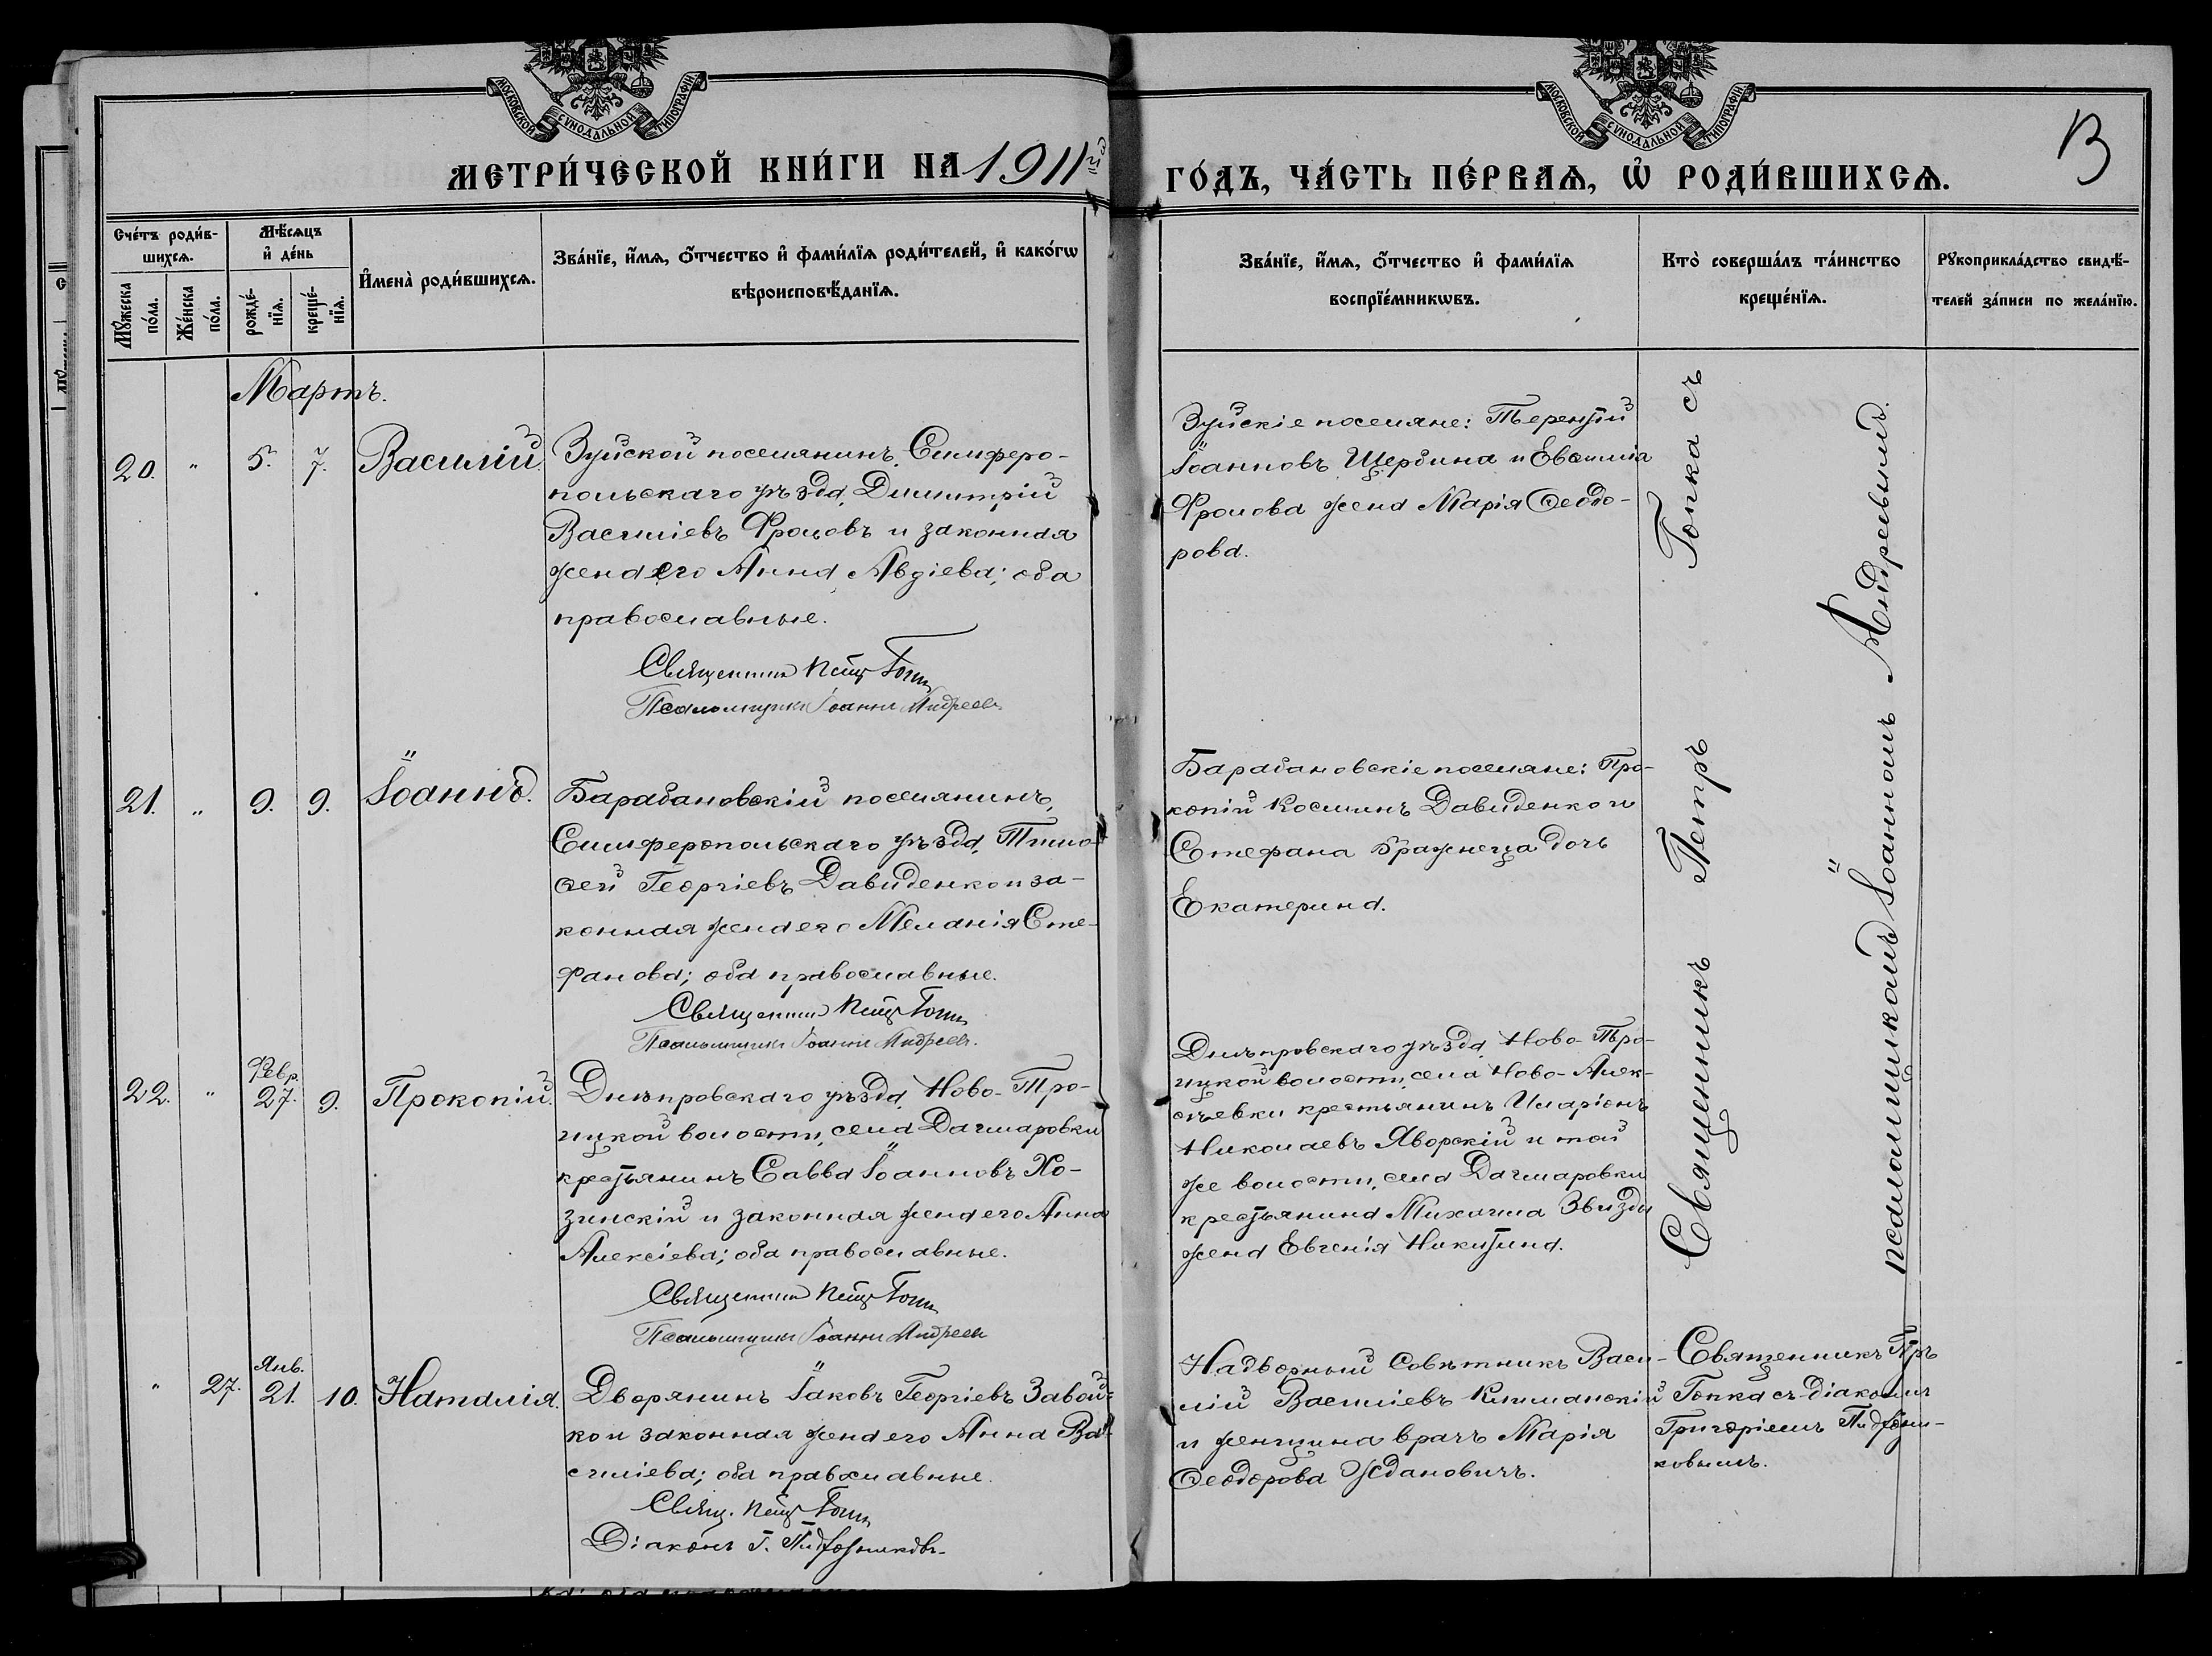 МОСКОВСКОЙ СУНОДАЛЬНОЙ ТИПОГРАФІИ
МОСКОВСКОЙ СУНОДАЛЬНОЙ ТИПОГРАФІИ
МЕТРИ́ЧЕСКОЙ КНИ́ГИ НА 1911 ГО́ДЪ, ЧА́СТЬ ПЕ́РВАѦ, Ѡ҆ РОДИ́ВШИХСѦ.
Сче́тъ роди́в-
шихсѧ.
Мꙋ́жеска по́ла.
Же́нска по́ла.
Мѣ́сѧцъ
и҆ де́нь
рожде́-
нїѧ.
креще́-
нїѧ.
И҆мена̀ роди́вшихсѧ.
Зва́нїе, и҆́мѧ, ѻ҆́тчество и҆ фами́лїѧ роди́телей, и҆ како́гѡ
вѣроисповѣ́данїѧ.
Зва́нїе, и҆́мѧ, ѻ҆́тчество и҆ фами́лїѧ
воспрїе́мникѡвъ.
Кто̀ соверша́лъ та́инство
креще́нїѧ.
Рꙋкоприкла́дство свидѣ́-
телей за́писи по жела́нїю.
Мартъ.
20. " 5. 7. Василій.
Зуйской поселянинъ, Симферо-
польскаго уѣзда, Димитрій
Василіевъ Фроловъ и законная
жена его Анна Авдіева; оба
православные.
Священникъ Петръ Гопка
Псаломщикъ Іоаннъ Андреевъ.
Зуйскіе поселяне: Терентій
Іоанновъ Щербина и Евсимія
Фролова жена Марія Ѳеодо-
рова.
21. " 9. 9. Іоаннъ.
Барабановскій поселянинъ,
Симферопольскаго уѣзда, Тимо-
ѳей Георгіевъ Давиденко и за-
конная жена его Меланія Сте-
фанова; оба православные.
Священникъ Петръ Гопка
Псаломщикъ Іоаннъ Андреевъ.
Барабановскіе поселяне: Про-
копій Косминъ Давиденко и
Стефана Бражнеца дочь
Екатерина.
22. " Февр. 27. 9. Прокопій.
Днѣпровскаго уѣзда, Ново-Тро-
ицкой волости, села Дагмаровки
крестьянинъ Савва Іоанновъ Хо-
зинскій и законная жена его Анна
Алексіева; оба православные.
Священникъ Петръ Гопка
Псаломщикъ Іоаннъ Андреевъ
Днѣпровскаго уѣзда, Ново-Тро-
ицкой волости, села Ново-Алек-
сѣевки крестьянинъ Иларіонъ
Николаевъ Яворскій и той
же волости, села Дагмаровки
крестьянина Михаила Звизды
жена Евгенія Никитина.
Священникъ Петръ Гопка съ
псаломщикомъ Іоанномъ Андреевымъ.
" 27. Янв. 21. 10. Наталія.
Дворянинъ Іаковъ Георгіевъ Завой-
ко и законная жена его Анна Ва-
силіева; оба православные.
Свящ. Петръ Гопка
Діаконъ Г.
Надворный Совѣтникъ Васи-
лій Василіевъ
и женщина врачъ Марія
Ѳеодорова Ждановичъ.
Священникъ Петръ
Гопка съ діакономъ
Григоріемъ
ковымъ.